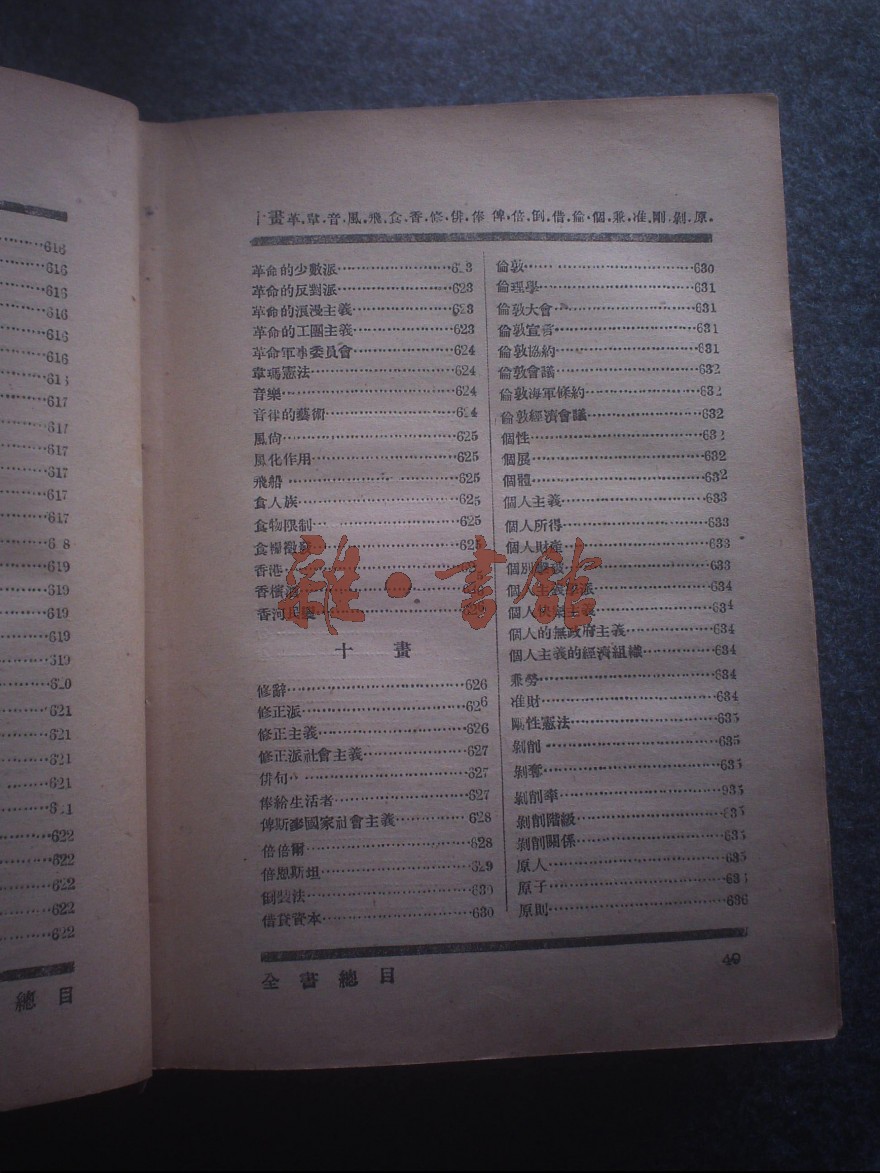 616
616
616
616
616
616
617
617
617
617
617
617
619
619
619
619
319
621
621
621
621
622
622
622
622
622
總目
十畫革.韋.音.風.飛.食.香.修.俳.俸.俾.倍.倒.借.倫.個.兼.准.剛.剝.原.
革命的少數派…623
革命的反對派…623
革命的浪漫主義…623
革命的工團主義…623
革命軍事委員會…624
韋瑪憲法…624
音樂…624
音律的藝術…624
風尙…625
風化作用…625
飛船…625
食人族…625
食物限制…625
食糧徵發…625
香港…625
香檳酒…626
香河民變…626
十畫
修辭…626
修正派…626
修正主義…626
修正派社會主義…627
俳句…627
俸給生活者…627
俾斯麥國家社會主義…628
倍倍爾…628
倍恩斯坦…629
倒裝法…630
借貸資本…630
倫敦…630
倫理學…631
倫敦大會…631
倫敦宣言…631
倫敦協約…631
倫敦會議…632
倫敦海軍條約…632
倫敦經濟會議…632
個性…632
個展…632
個體…632
個人主義…633
個人所得…633
個人財產…633
個別擊破…633
個人主義學派…634
個人快樂主義…634
個人的無政府主義…634
個人主義的經濟組織…634
兼勞…634
准財…634
剛性憲法…635
剝削…635
剝奪…635
剝削率…935
剝削階級…635
剝削關係…635
原人…635
原子…636
原則…636
全書總目
40
雜·書館